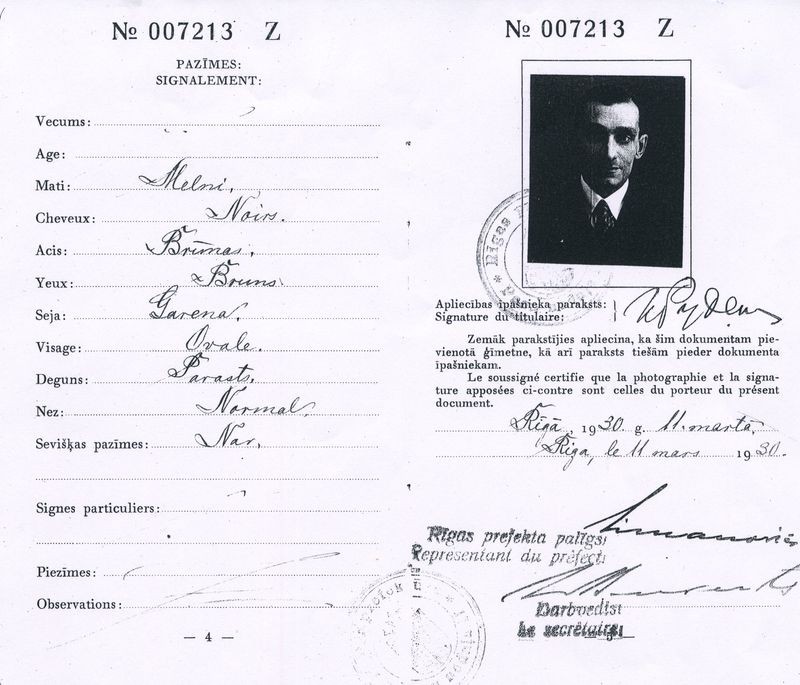 № 007213 Z
PAZĪMES:
SIGNALEMENT:
Vecums:
Age:
Mati: Melni.
Cheveux: Noirs.
Acis: Brūnas.
Yeux: Bruns
Seja: Garena.
Visage: Ovale.
Deguns: Parasts.
Nez: Normal.
Sevišķas pazīmes: Nav.
Signes particuliers:
Piezīmes:
Observations:
— 4 —
№ 007213 Z
Rīgas
Apliecības īpašnieka paraksts:
Signature du titulaire:
Zemāk parakstījies apliecina, ka šim dokumentam pie-
vienotā ģīmetne, kā arī paraksts tiešām pieder dokumenta
īpašniekam.
Le soussigné certifie que la photographie et la signa-
ture apposées ci-contre sont celles du porteur du présent
document.
Rīgā, 1930 g. 11. martā.
Riga, le 11 mars 1930.
Rīgas prefekta palīgs:
Représentant du préfect:
Darbvedis:
Le secrétaire: